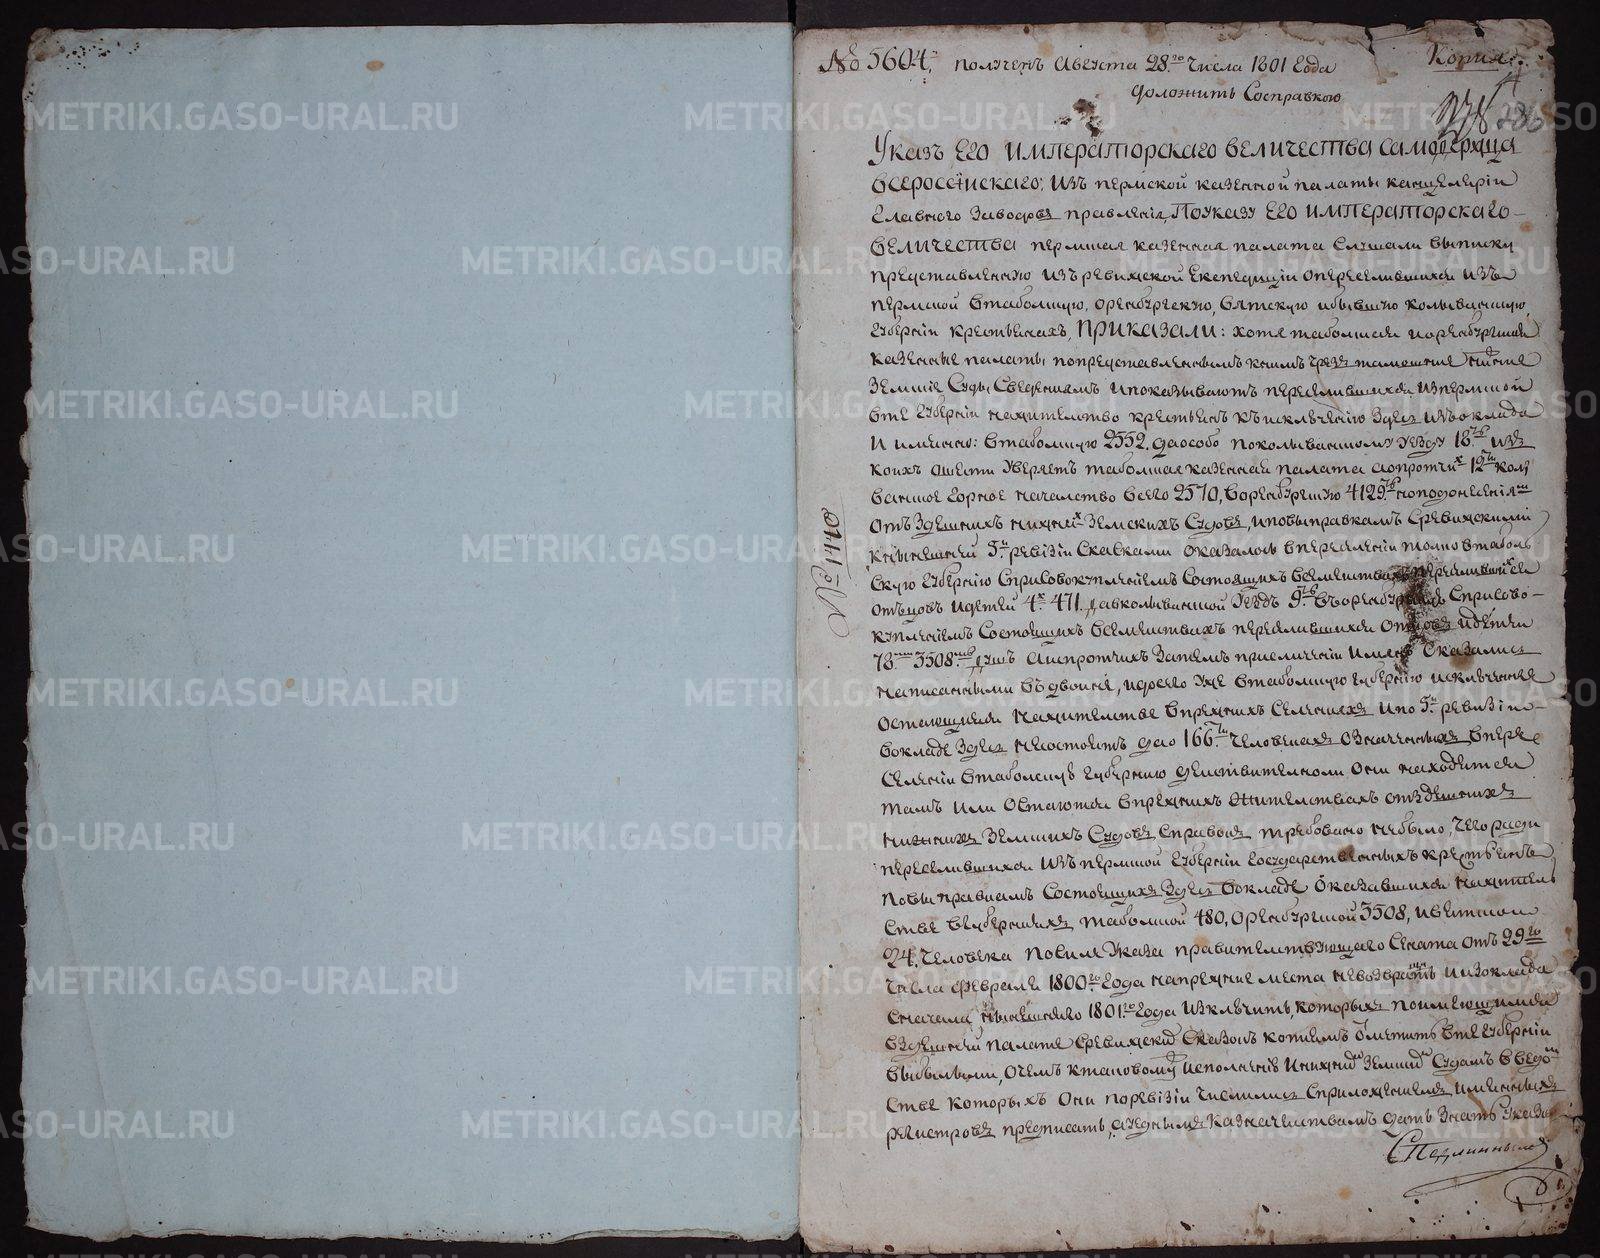 № 5604. полученъ Августа 28го числа 1801 года
Копия.
доложить Сосправкою
Указъ ЕГО ИМПЕРАТОРСКАГО ВЕЛИЧЕСТВА САМОДЕРЖЦА
ВСЕРОССІЙСКАГО: изъ пермской казенной палаты канцеляріи
Главного Заводовъ правленія, Поуказу ЕГО ИМПЕРАТОРСКАГО
ВЕЛИЧЕСТВА пермская казенная палата слушали выписку
представленную изъ ревижской Експедиціи опереселившихся изъ
пермской втабольскую, оренбургскую, вятскую ибывшую колыванскую
губерніи крестьянахъ, ПРИКАЗАЛИ: хотя табольская иоренбургская
казенные палаты попредставленнымъ книмъ чрезъ тамошние нижние
Земские Суды Сведениямъ ипоказываютъ переселившихся изпермской
вте губернии нажительство крестьянъ къисключению здесь изъоклада
и именно: втабольскую 2552. даособо поколыванскому уезду 18ть изъ
коихъ ошести уверяетъ табольская казенная палата аопротчих 12ти колы
ванское горное началство всего 2570, воренбургскую 4129ть нополучениям
отъ Здешнихъ нижних Земскихъ Судовъ, иповыправкамъ Сревижскими
кнынешней 5й ревизіи Сказками оказалось впереселении толко втаболь
скую губернию Сприсовокуплениемъ Состоящихъ всемействахъ переселившихся
отцовъ идетей 4х 471. давколыванской уездъ 9ть въоренбургскую Сприсово-
куплениемъ Состоящихъ всемействахъ переселившихся отцовъ идетей
78ми 3508мь душъ аиспротчихъ Затемъ приличении именъ Оказались
написанными въдвойне, идоего уже втабольскую губернию исключения
остающиеся нажительстве впрежнихъ Селенияхъ ипо 5й ревизіи
вокладе здесь несостоитъ дао 166ти человекахъ означенныхъ впере
селении втабольскую губернию действительноли Они находятся
тамъ или Остаются впрежнихъ Жительствахъ отздешнихъ
нижнихъ Земскихъ Судовъ Справокъ требовано небыло, чего ради
переселившихся изъ пермской губерніи государственныхъ крестьянъ
повыправкамъ Состоящихъ здесь вокладе Оказавшихся нажитель
стве вгуберніяхъ табольской 480, оренбургской 3508, ивятской
24. человека посиле Указа правительствующаго Сената отъ 29го
числа февраля 1800го года напрежние места невозвратя иизоклада
Сначала нынешняго 1801го года изключить, которыхъ поимеющимся
вздешней палате Сревижскихъ Сказокъ копиямъ Отметить вте губерніи
выбылыми, очемъ ктаковому исполнению инижнимъ Земскимъ Судамъ введом
стве которыхъ Они поревизіи числились Сприложениемъ имянныхъ
регистровъ предписать, ауезднымъ казначействамъ дать Знать указа
СПодлиннымъ